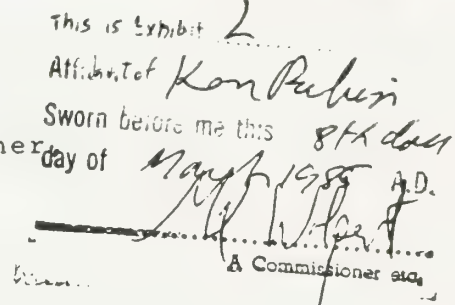 This is Exhibit 2
Affidavit of Ken Rubin
Sworn before me this 8th day
her day of March 1985 A.D.
A Commissioner etc.